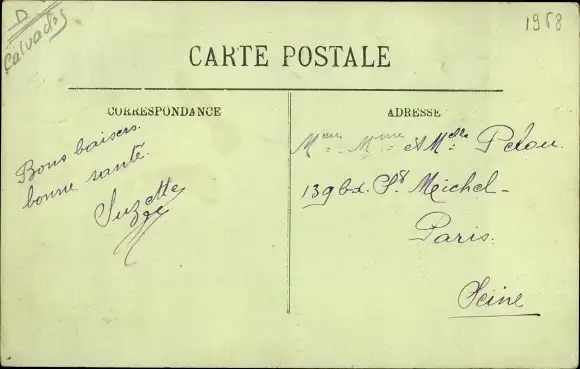 D
Calvados
1968
CARTE POSTALE
CORRESPONDANCE
Bons baisers.
bonne santé.
Suzette
ADRESSE
M. Mme et Mlle Petou.
139 bd. St Meichel-
Paris.
Seine